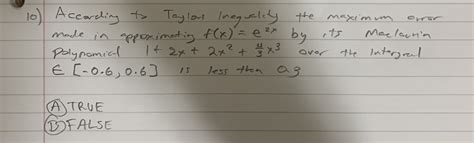 10) According to Taylor Inequality the maximum error
made in approximating f(x) = e^2x by its Maclaurin
Polynomial 1 + 2x + 2x² + 4/3 x³ over the Interval
∈ [-0.6, 0.6] is less than 0.3
(A) TRUE
(B) FALSE